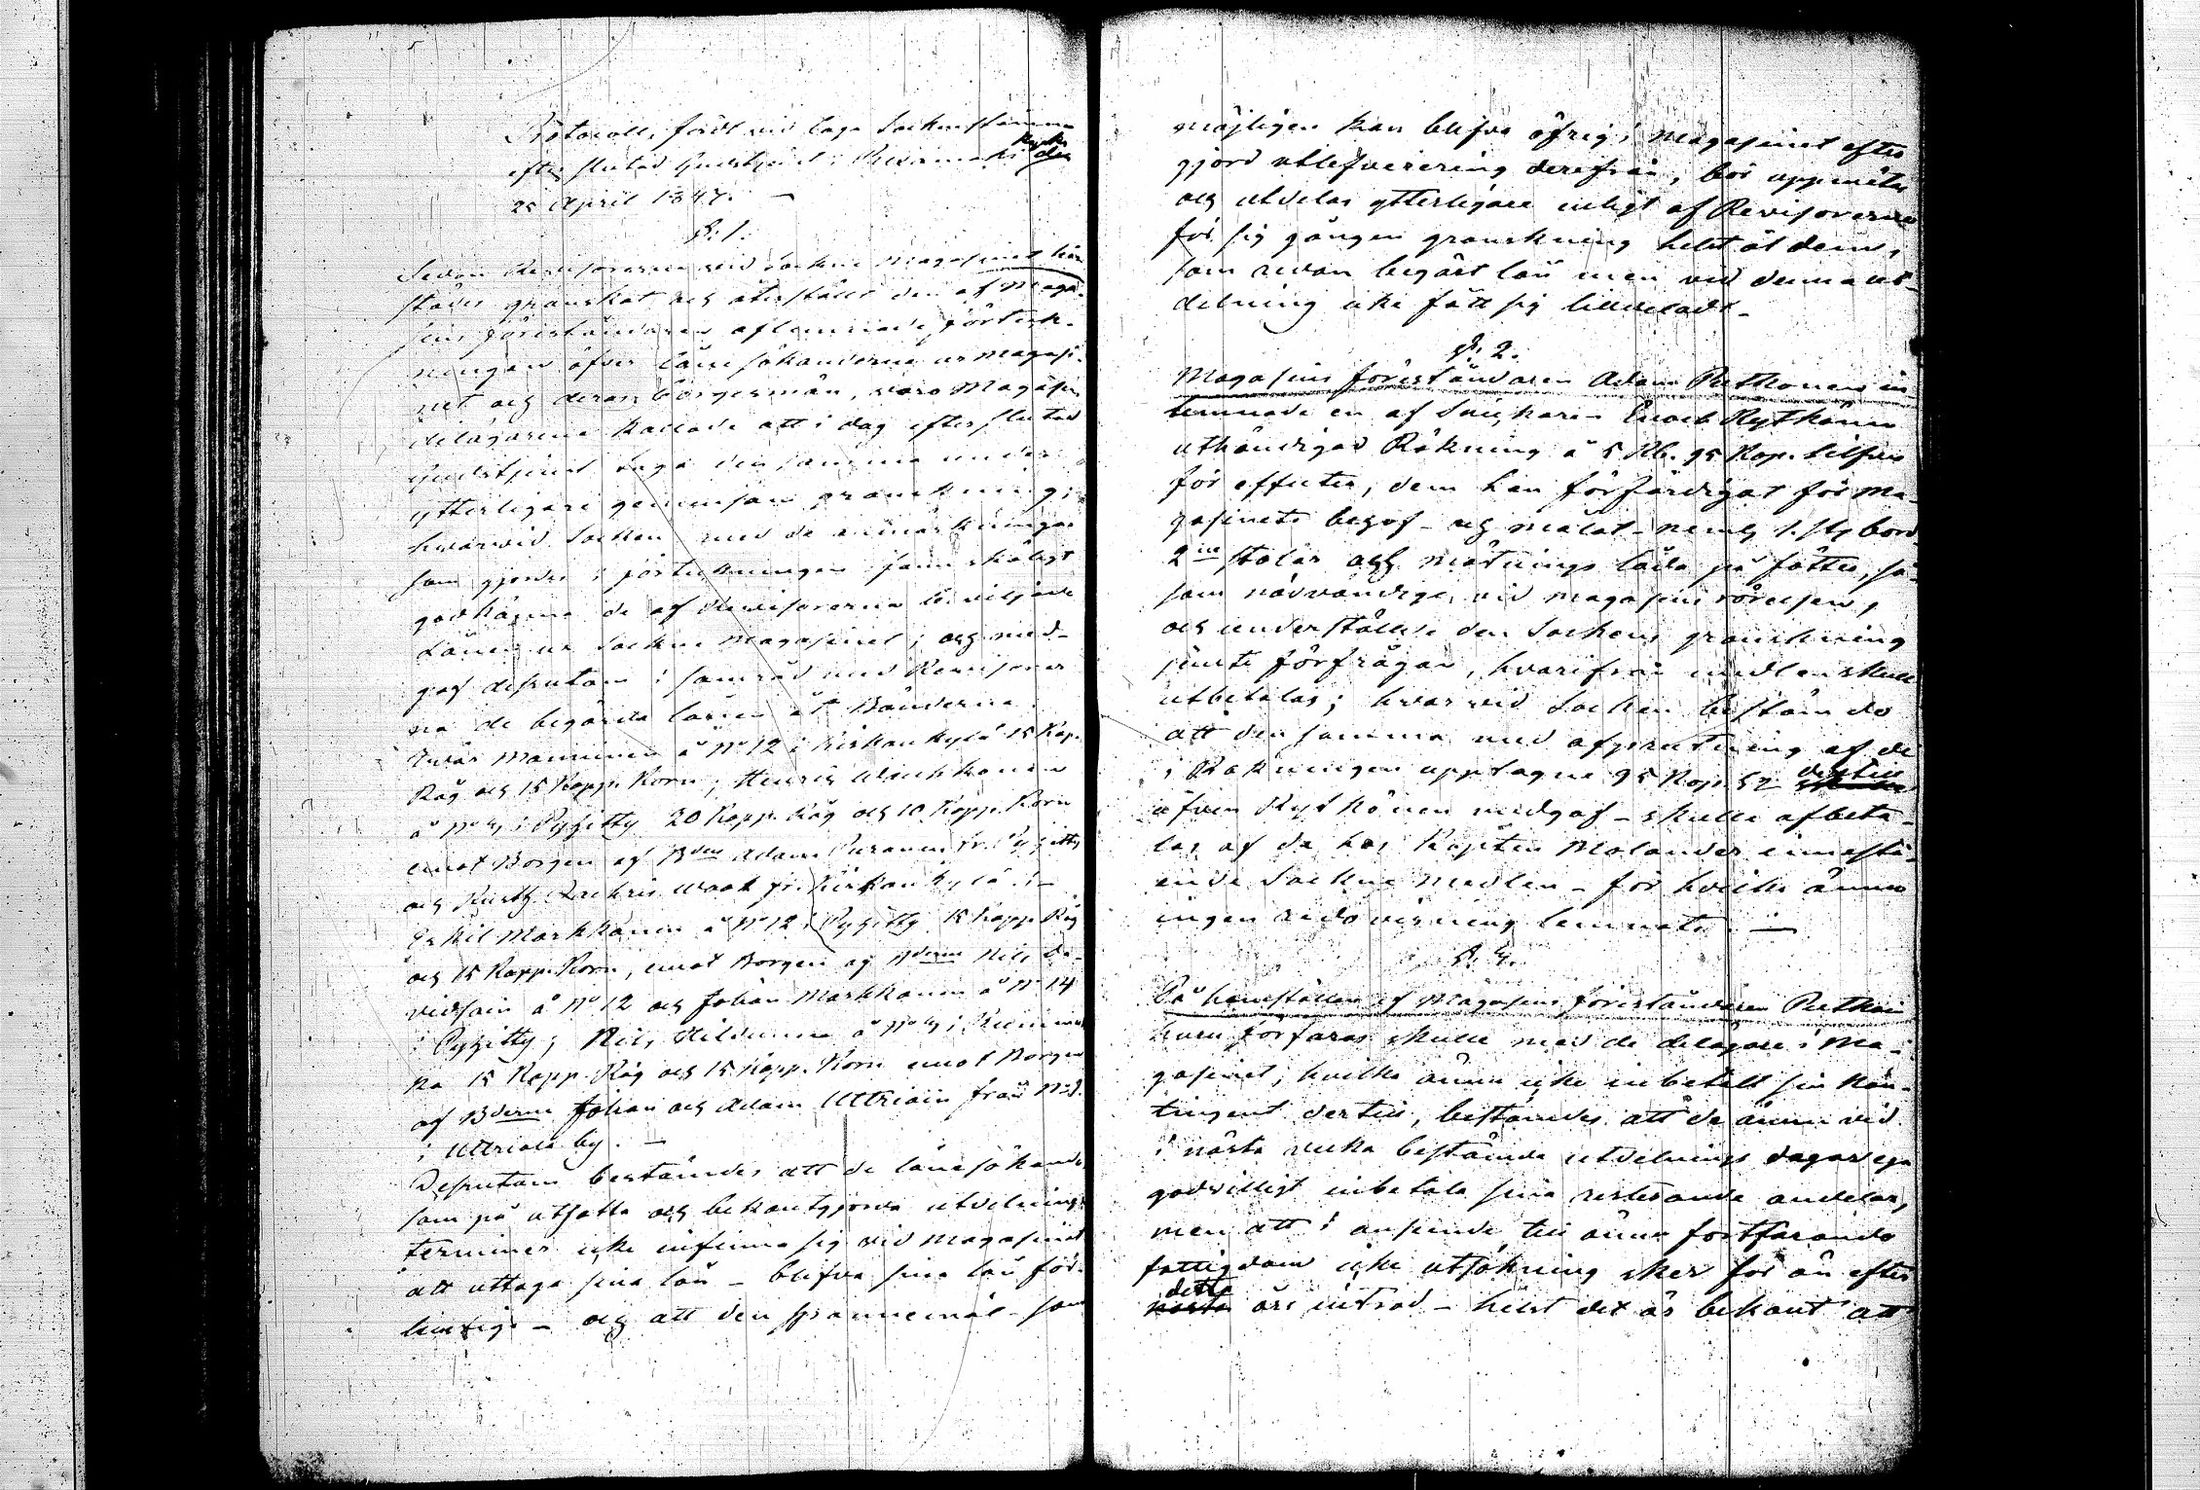 Protocoll, fördt vid laga Sockenstämma
efter slutad Gudstjenst i kyrka den
25 April 1847. —
§. 1.
Sedan Revisorerne vid Sockne Magasinet här
städes granskat och återstält den af Maga-
sins föreståndaren aflemnade förtek-
ningen öfver lånesökanderne ur Magasi-
net och deras borgesmän, voro Magasins
delägarene kallade att i dag efter slutad
Gudstjenst taga den samma under
ytterligare gemensam granskning;
hvarvid Socken med de anmärkningar
som gjordes i förtekningen fann skäligt
godkänna de af Revisorerna beviljade
Lånen ur Sockne Magasinet; och med-
gaf dessutom i samråd med Revisorer
na de begärda lånen åt Bönderna
Manninen å No 12 i Kirkonkylä 15 Kap.
Råg och 15 Kapp. Korn; Henrik
å No 4 i Pyhitty 20 Kapp. Råg och 10 Kapp. Korn
emot Borgen af Bden Adam Puranen fr. Pyhitty
och fr. Kirkonkylä. —
Eskil Markkanen å No 12 i Pyhitty 15 Kapp Råg
och 15 Kapp. Korn, emot Borgen af Bderne Nils Da-
vidsain å No 12 och Johan Markkanen å No 14
i Pyhitty; Nils Hildunen å No 4 i
ka 15 Kapp. Råg och 15 Kapp. Korn emot Borgen
af Bderne Johan och Adam Uttriain från No 2.
i Uttriala by. —
Dessutom bestämdes att de lånesökande
som på utsatta och bekantgjorda utdelnings
terminer icke infinna sig vid Magasinet
att uttaga sina lån – blifva sina lån för-
lustige – och att den spannemål som
möjligen kan blifva öfrig i Magasinet efter
gjord utlefverering derifrån, bör uppmätas
och utdelas ytterligare enligt af Revisorerne
för sig gången granskning helst åt dem,
som redan begärt lån men vid denna ut-
delning icke fått sig tilldeladt.
§. 2.
Magasins föreståndaren Adam Puthonen in
lemnade en af Snickaren Enoch Rythönen
uthändigad Räkning å 5 Rb. 95 Kop. Silfver
för effecter, dem han förfärdigat för Ma-
gasinets behof – och målat – neml. 1. st. bord
2ne stolar och mätnings låda på fötter, så
som nödvändige vid magasins rörelsen,
och underställde den Sockens granskning
jemte förfrågan, hvarifrån medlen skulle
utbetalas; hvarvid Socken bestämde
att densamma med afprutning af de
i Räkningen upptagne 95 Kop. Sr dertill
äfven Rythönen medgaf – skulle afbeta-
las af de hos Kapten Molander innestå-
ende Sockne medlen – för hvilka ännu
ingen redovisning lemnats. —
§. 4.
På hemställan af Magasins föreståndaren Puthoin
huru förfaras skulle med de delägare i Ma-
gasinet, hvilka ännu icke inbetalt sin Kon-
tingent dertill, bestämdes att de ännu vid
i nästa vecka bestämda utdelnings dagar ega
godvilligt inbetala sina resterande andelar,
men att i anseende till ännu fortfarande
fattigdom icke utsökning sker för än efter
detta års inträd – helst det är bekant att